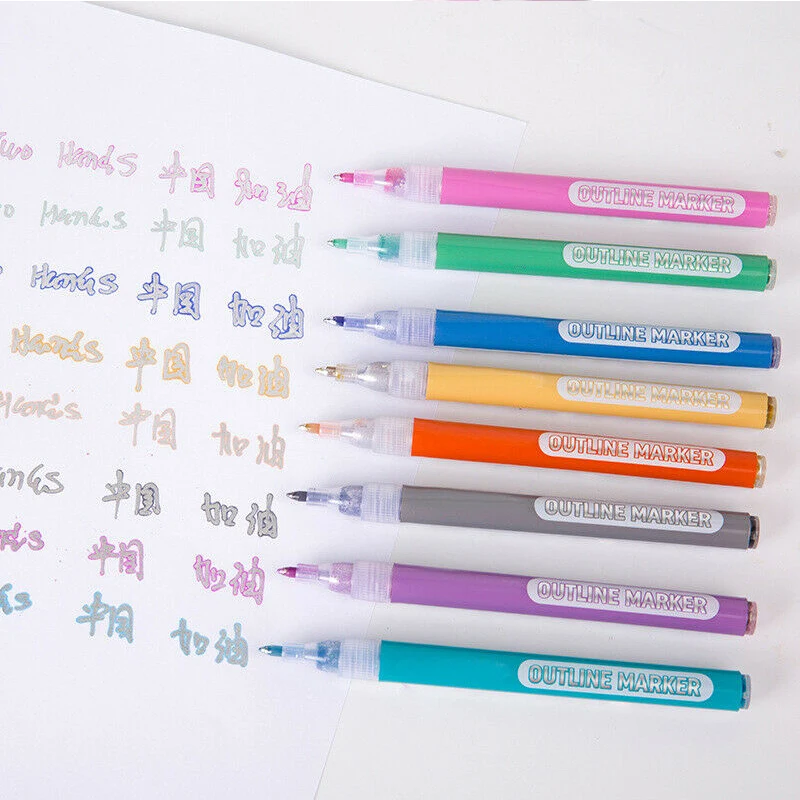 Two Hands 中国 加油
OUTLINE MARKER
Two Hands 中国 加油
OUTLINE MARKER
Hands 中国 加油
OUTLINE MARKER
Hands 中国 加油
OUTLINE MARKER
Hands 中国 加油
OUTLINE MARKER
Hands 中国 加油
OUTLINE MARKER
中国 加油
OUTLINE MARKER
中国 加油
OUTLINE MARKER